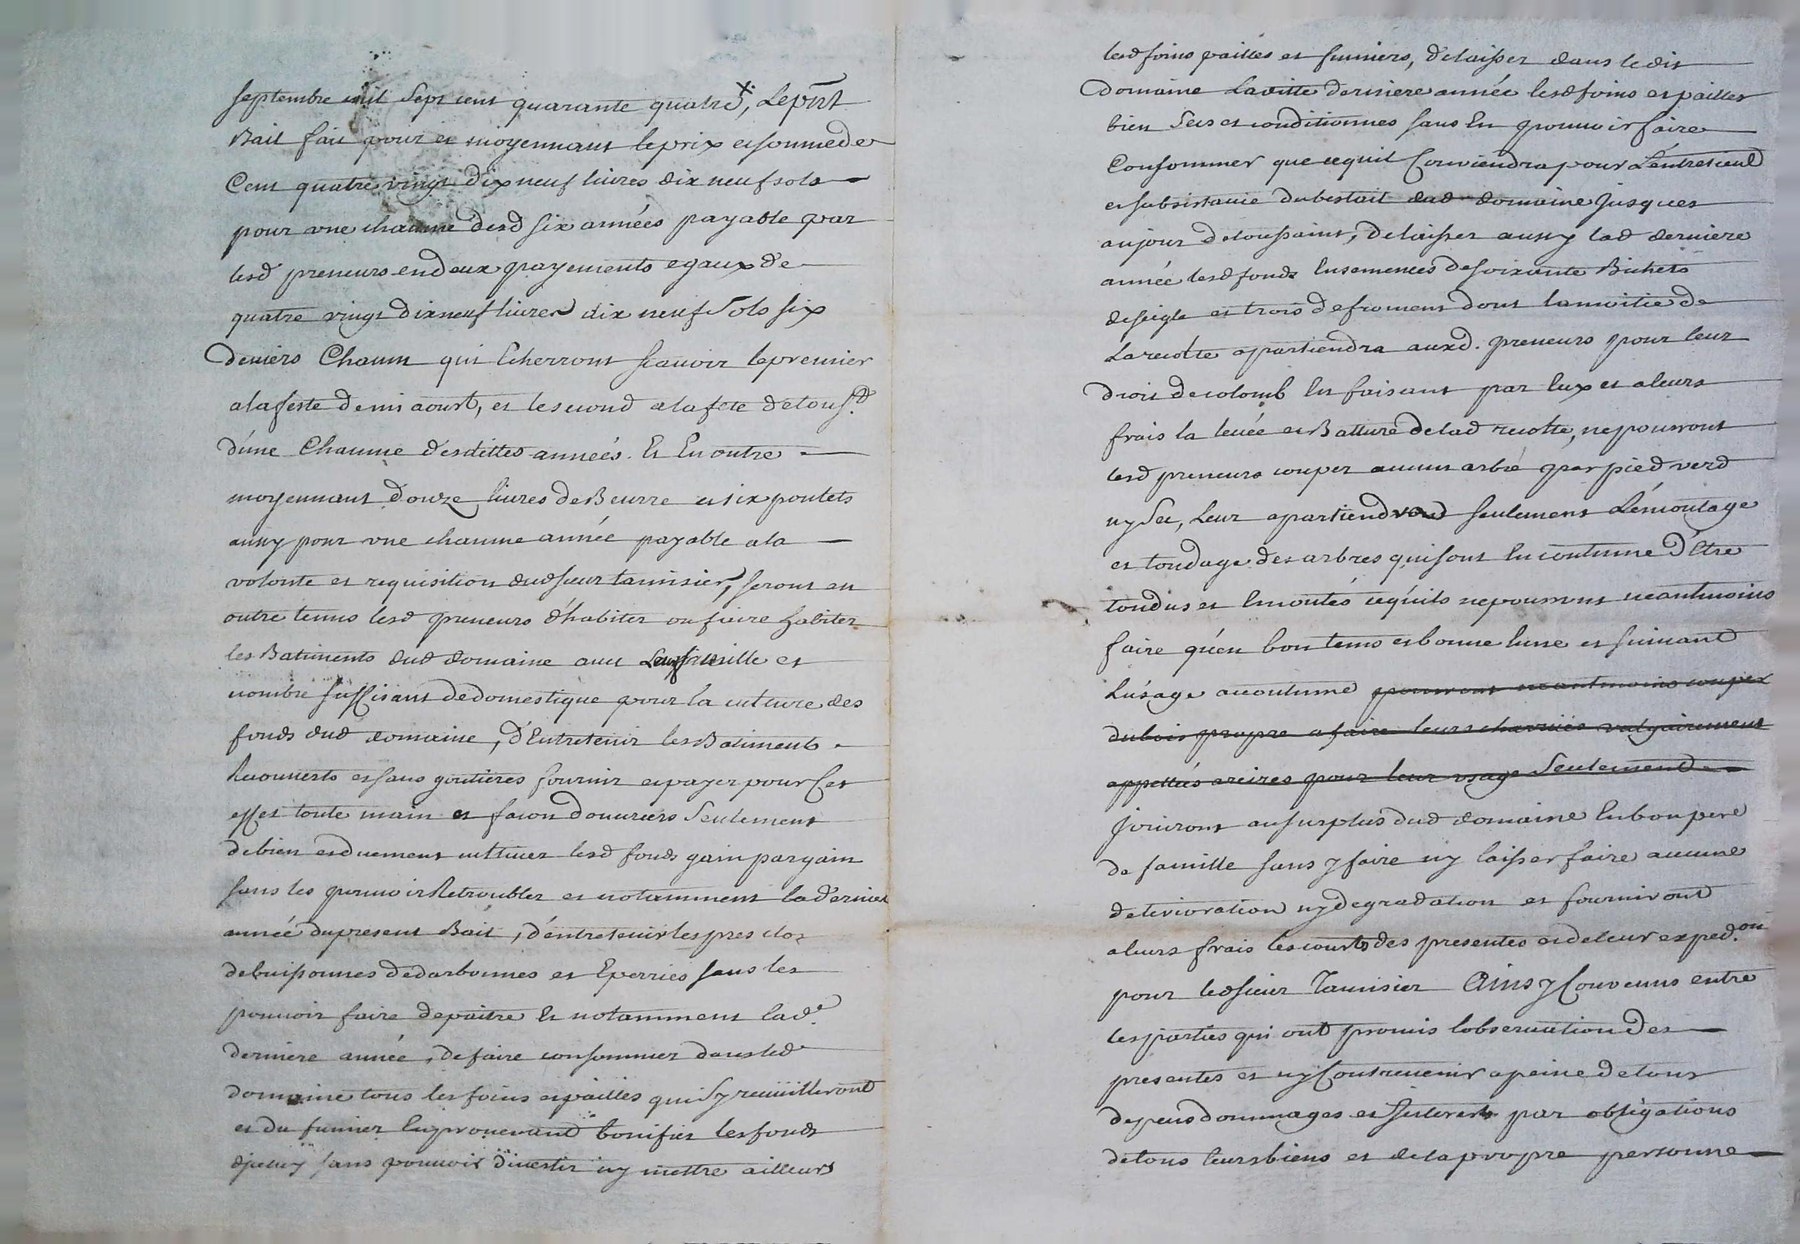 septembre mil sept cent quarante quatre, Lepnt
Bail fait pour et moyennant le prix et sommede
Cent quatre vingt dix neuf livres dix neuf sols
pour une chacune desd six années payable par
lesd preneurs en deux payements egaux de
quatre vingt dix neuf livres dix neuf sols six
deniers Chacun qui Echerront scavoir le premier
a la feste de mi aoust, et le second a la fete de tous.ts
d'une Chacune desdittes années. Et En outre
moyennant douze livres de Beurre et six poulets
aussy pour une chacune année payable a la
volonte et requisition dud sieur tamisier, seront en
outre tenus lesd preneurs d'habiter ou faire habiter
les Batiments dud domaine avec Leur famille et
nombre suffisant de domestique pour la culture des
fonds dud domaine, d'Entretenir les Batiments
Recouverts et sans goutieres fournir et payer pour Cet
effet toute main et facon d'ouvriers Seulement
de bien et duement cultiver lesd fonds gain par gain
sans les pouvoir Retroubler et notamment la derniere
année du present Bail, d'entretenir les pres clos
de buissonnes dedarbonnes et Eperries sans les
pouvoir faire depaitre Et notamment lad.e
derniere année, de faire consommer dans led
domaine tous les foins et pailles qui s'y recuillleront
et du fumier En provenant bonifier les fonds
d'jceluy sans pouvoir divertir ny mettre ailleurs
lesd foins pailles et fumiers, delaisser dans le dit
domaine Laditte derniere année lesd foins et pailles
bien Secs et conditionnes sans En pouvoir faire
Consommer que ce quil Conviendra pour L'entretient
et subsistance du bestail dud domaine Jusques
au jour de toussaint, delaisser aussy lad derniere
année lesd fonds Ensemences de soixante Bichets
de seigle et trois de froment dont la moitie de
La recolte apartiendra auxd. preneurs pour leur
droit de colomb En faisant par Eux et a leurs
frais la levée et Batture de lad recolte, ne pourront
lesd preneurs couper aucun arbre par pied verd
ny Sec, Leur apartiendra seulement L'émontage
et tondage des arbres qui sont En coutume d'Etre
tondus et Emontés ce qu'ils ne pourront neantmoins
faire qu'en bon tems et bonne lune et suivant
L'usage accoutumé pourront neantmoins couper
du bois propre a faire leurs charrües vulgairement
appellées areires pour leur usage Seulement
Joüiront au surplus dud domaine En bon pere
de famille sans y faire ny laisser faire aucune
deterioration ny degradation et fourniront
a leurs frais les courts des presentes et de leur exped.on
pour led sieur Tamisier Ainsy Convenus entre
les parties qui ont promis l'observation des
presentes et ny Contrevenir a peine de tous
depens dommages et Interets par obligations
de tous leurs biens et de la propre personne